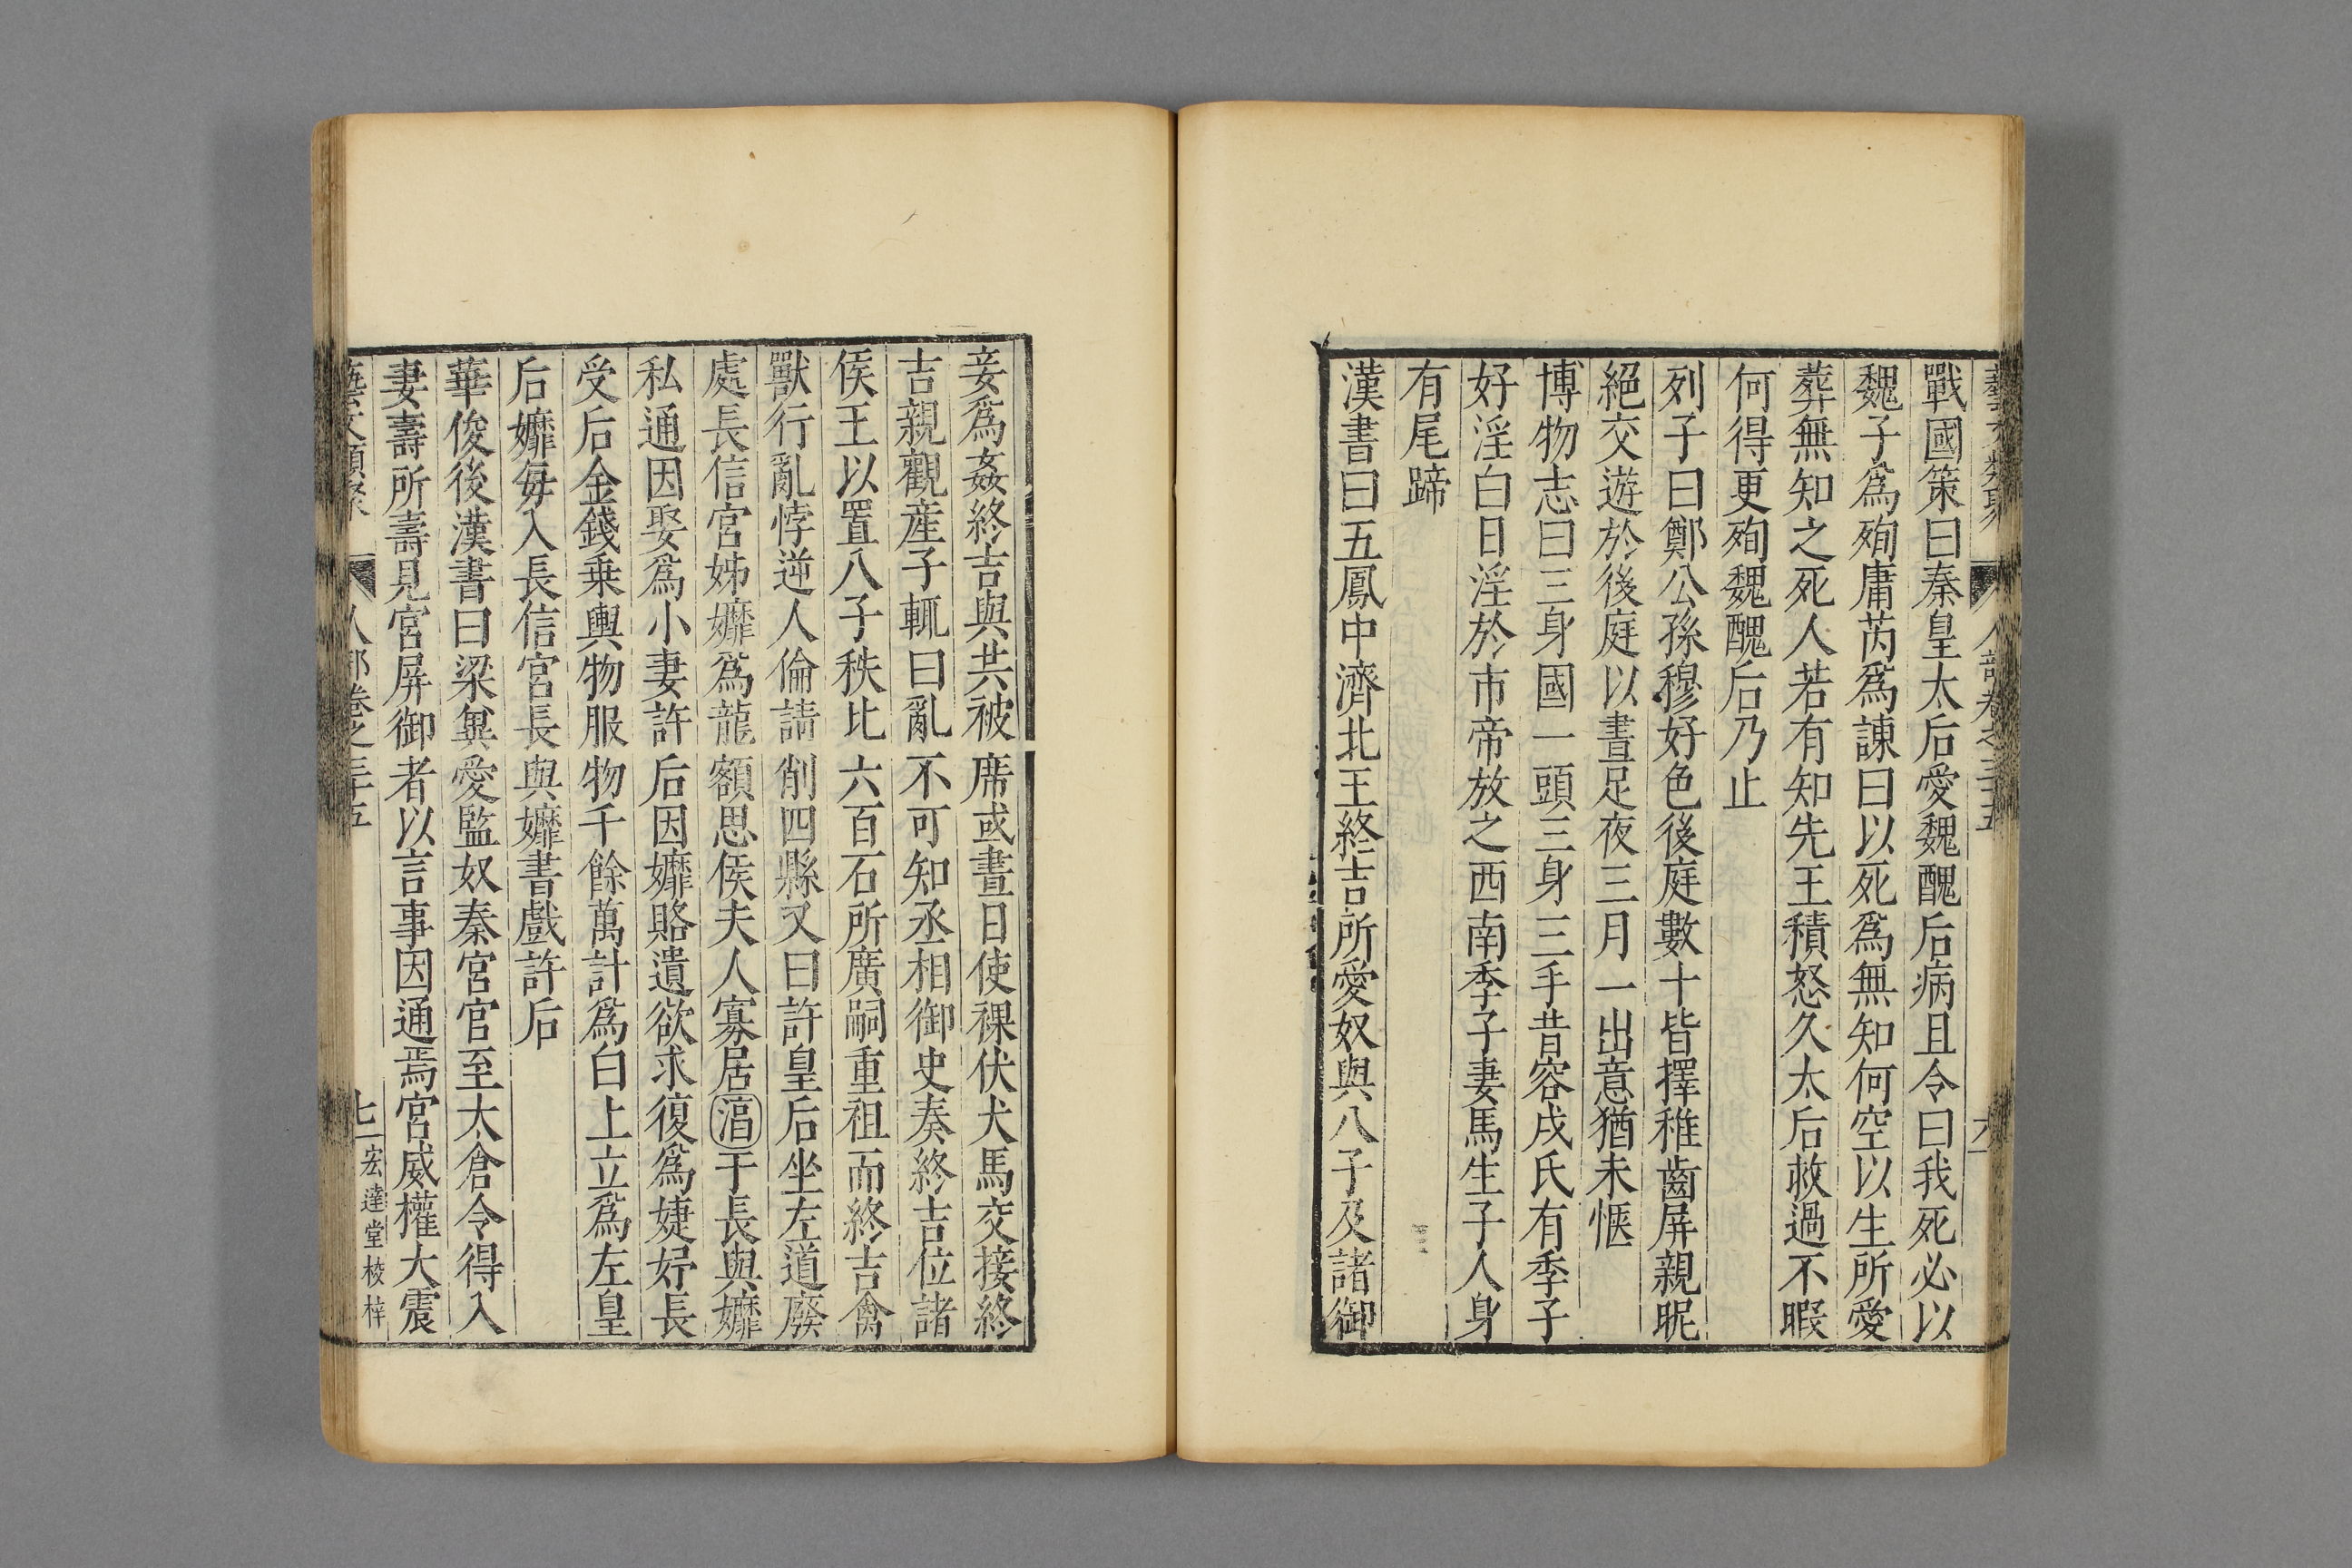 藝文類聚 人部卷之三十五 六
戰國策曰秦皇太后愛魏醜后病且令曰我死必以
魏子爲殉庸芮爲諫曰以死爲無知何空以生所愛
葬無知之死人若有知先王積怒久太后救過不暇
何得更殉魏醜后乃止
列子曰鄭公孫穆好色後庭數十皆擇稚齒屏親昵
絕交遊於後庭以晝足夜三月一出意猶未愜
博物志曰三身國一頭三身三手昔容成氏有季子
好淫白日淫於市帝放之西南季子妻馬生子人身
有尾蹄
漢書曰五鳳中濟北王終吉所愛奴與八子及諸御
妾爲姦終吉與共被席或晝日使裸伏犬馬交接終
吉親觀産子輒曰亂不可知丞相御史奏終吉位諸
侯王以置八子秩比六百石所廣嗣重祖而終吉禽
獸行亂悖逆人倫請削四縣又曰許皇后坐左道廢
處長信宮姊孊爲龍額思侯夫人寡居淳于長與孊
私通因娶爲小妻許后因孊賂遺欲求復爲婕妤長
受后金錢乗輿物服物千餘萬計爲白上立爲左皇
后孊每入長信宮長與孊書戲許后
華俊後漢書曰梁兾愛監奴秦宮官至太倉令得入
妻壽所壽見宮屏御者以言事因通焉宮威權大震
藝文類聚 人部卷之三十五 七 宏達堂校梓